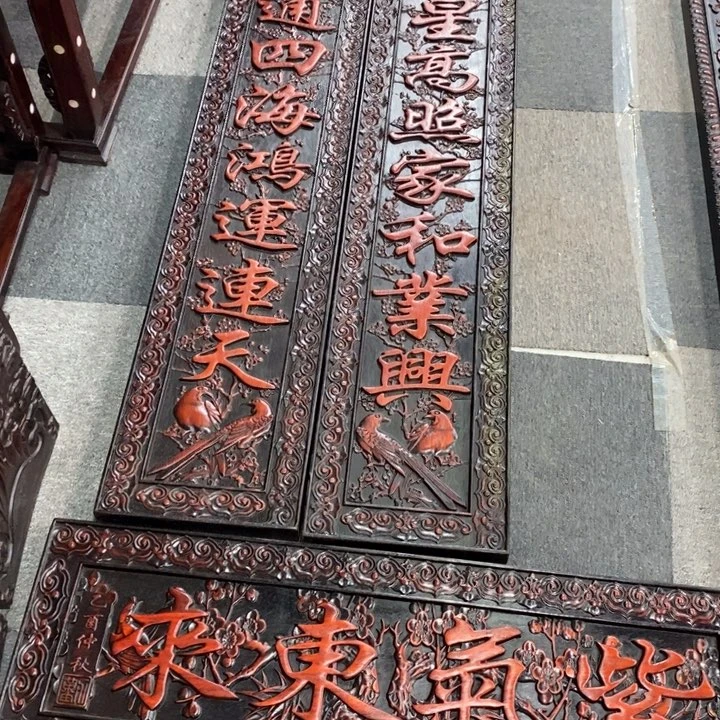 星高照家和業興
通四海鴻運連天
紫氣東來
乙酉仲秋